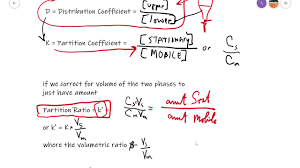 D = Distribution Coefficient = [upper]
[lower]
K = Partition Coefficient = [STATIONARY] or Cs
[MOBILE] Cm
if we correct for volume of the two phases to
just have amount
Partition Ratio = k' CsVs = amt Sorb
CmVm amt mobile
or k' = K * Vs
Vm
where the volumetric ratio β = Vs
Vm